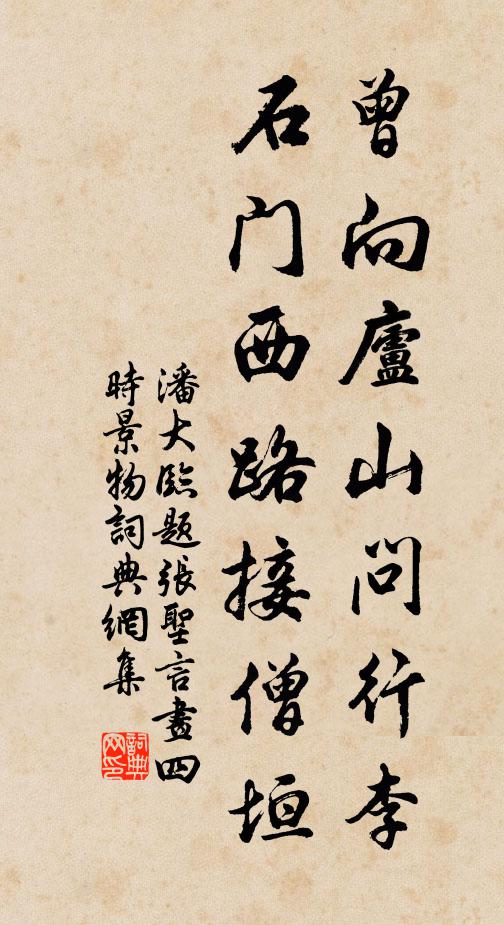 曾向廬山問行李
石门西路接僧垣
潘大臨題張聖言畫四
時景物詞典網集
詞典网印